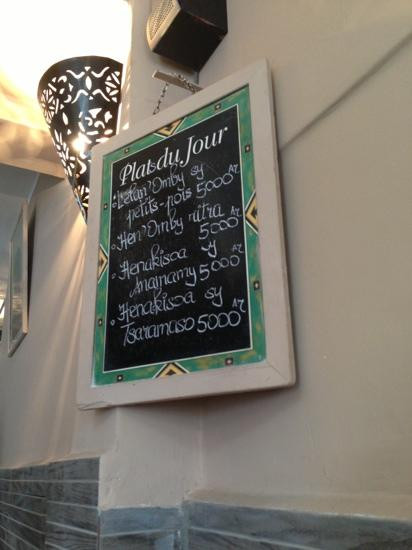 Plats du Jour
Lelan'Omby sy
petits-pois 5000 Ar
Hen'Omby ritra
5000 Ar
Henakisoa sy
Anamamy 5000 Ar
Henakisoa sy
Tsaramaso 5000 Ar